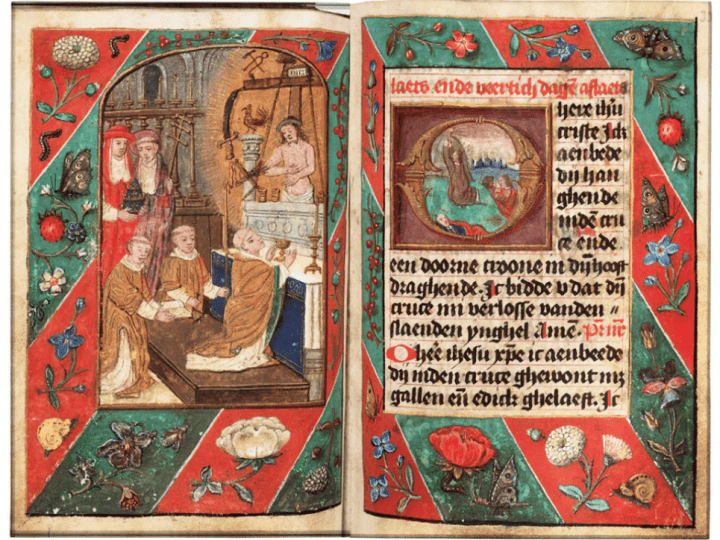 laets ende veertich dagē aflaets
O here ihū
criste Jck
aenbede
dij han
ghende
indē cru
ce ende
een doorne croone in dijn hooft
draghende. Ic bidde v dat dijn
cruce mi verlosse vanden
slaenden ynghel Amē. Pr nr
O heē ihesu xpē ic aenbeede
dij inden cruce ghewont mz
gallen eñ edick ghelaeft. Ic